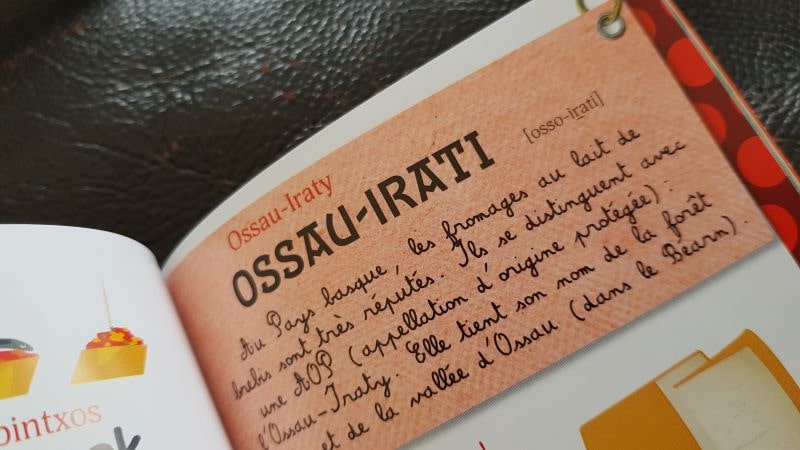 Ossau-Iraty
OSSAU-IRATI [osso-irati]
Au Pays basque, les fromages au lait de
brebis sont très réputés. Ils se distinguent avec
une AOP (appellation d'origine protégée) :
l'Ossau-Iraty. Elle tient son nom de la forêt
et de la vallée d'Ossau (dans le Béarn).
pintxos